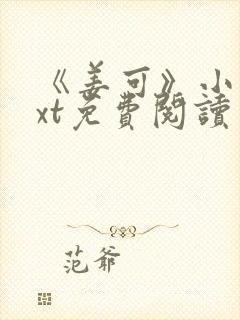 《姜可》小
xt免費閱讀
范爺